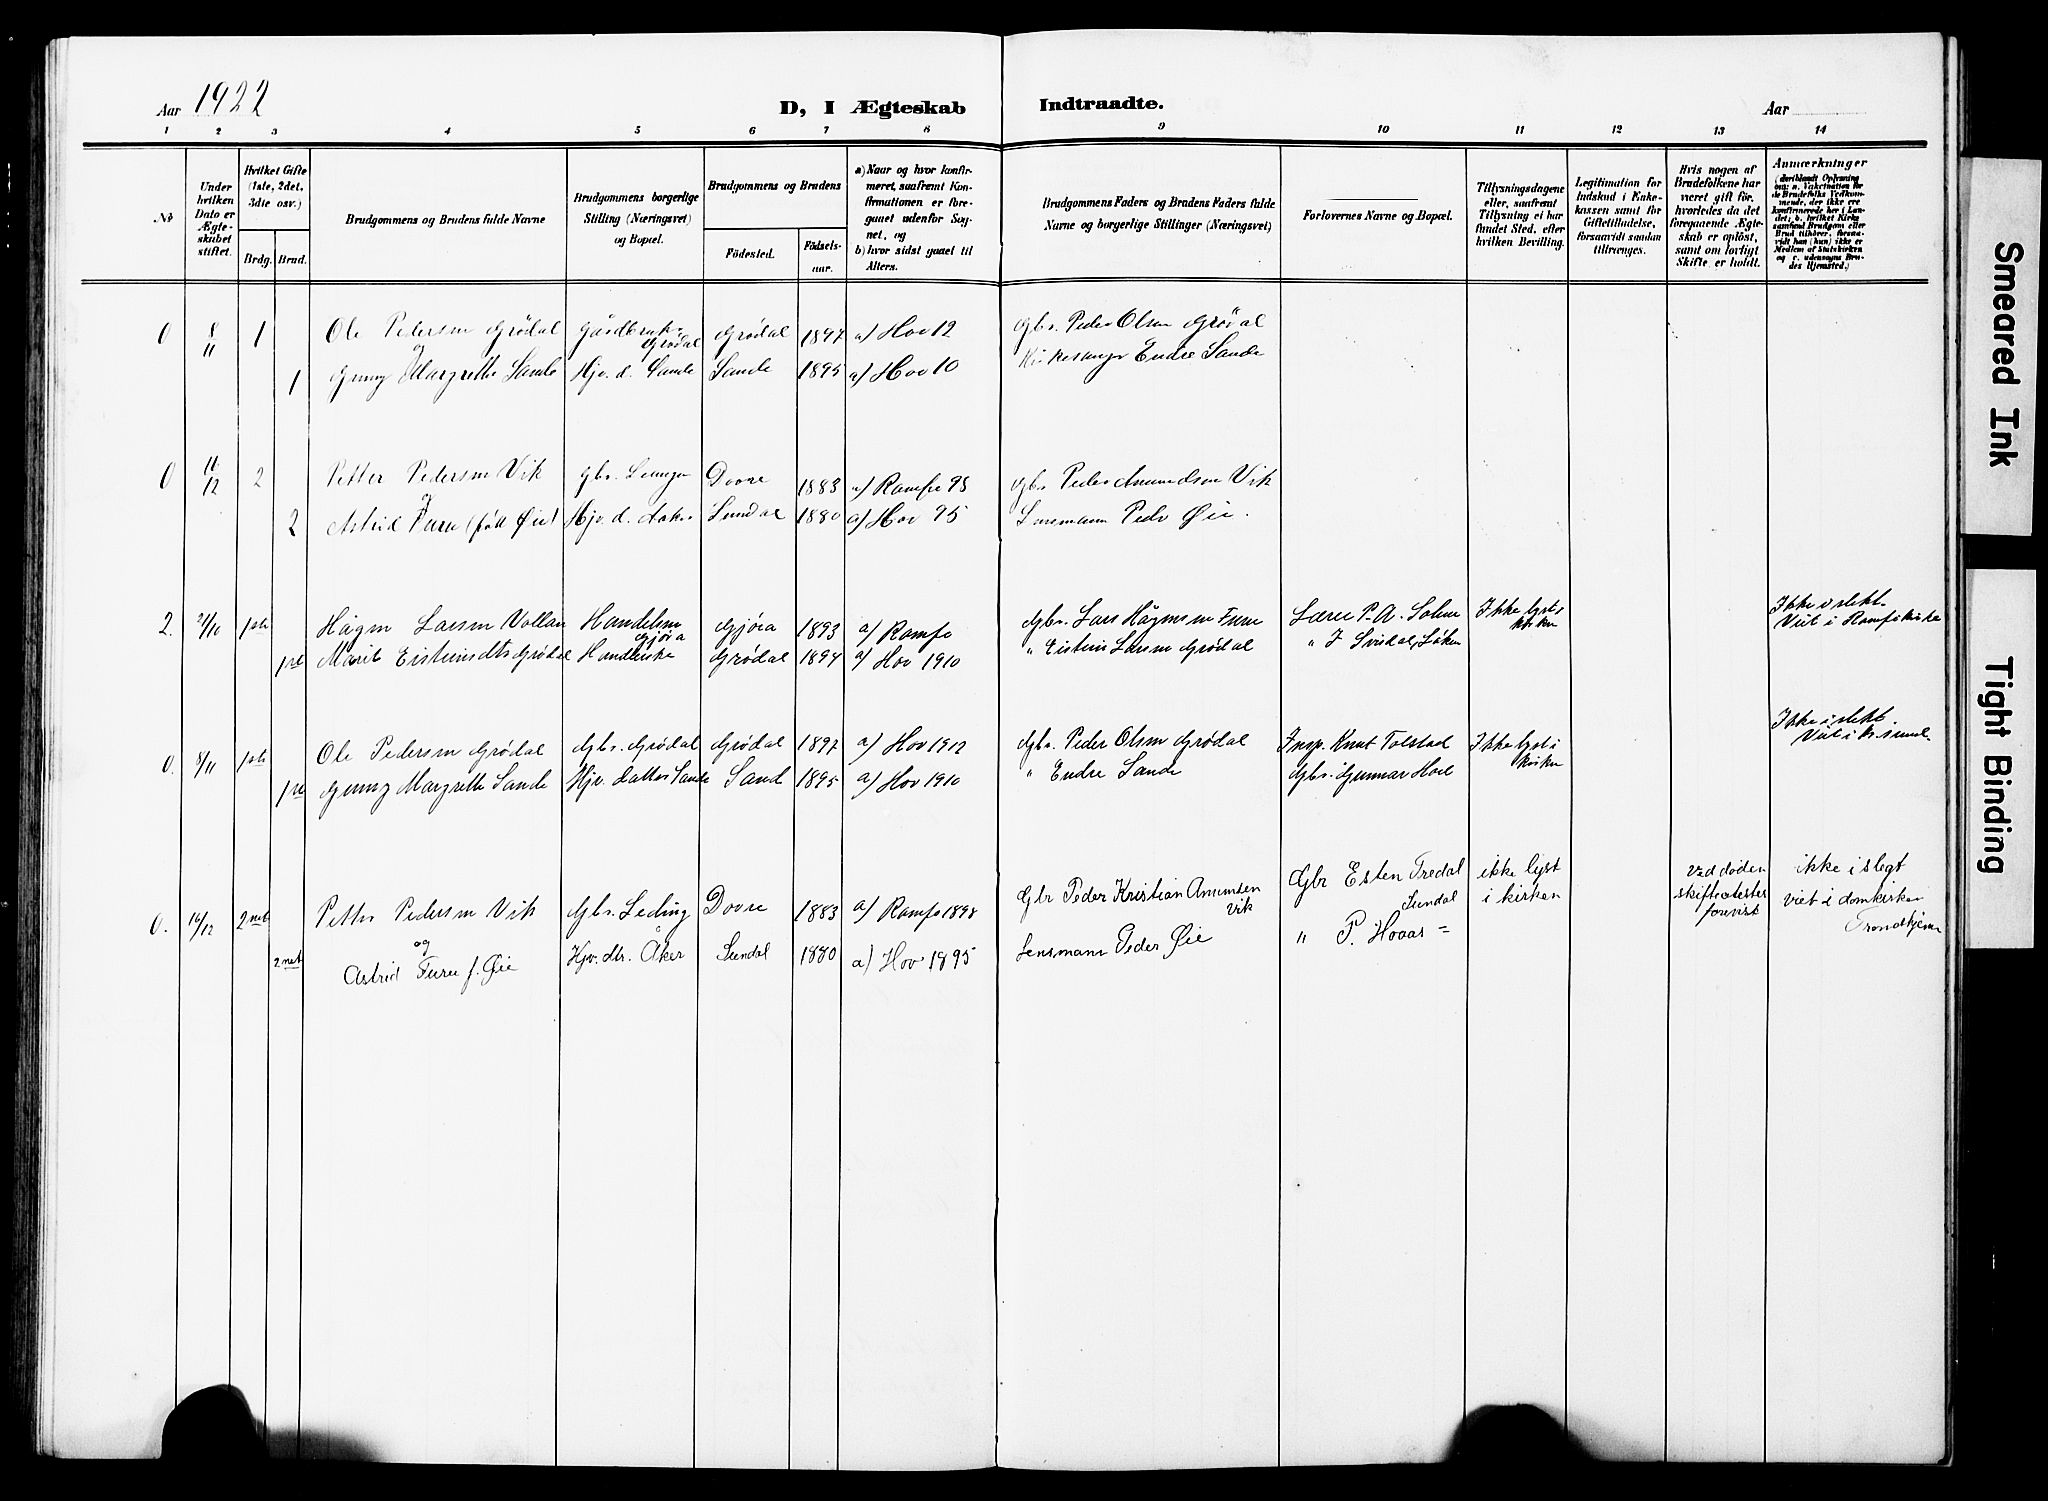 Aar 1922
D, I Ægteskab Indtraadte.
Aar
1 2 3 4 5 6 7 8 9 10 11 12 13 14
No
Under hvilken Dato er Ægteskabet stiftet.
Hvilket Gifte (1ste, 2det, 3die osv.)
Brdg. Brud.
Brudgommens og Brudens fulde Navne
Brudgommens borgerlige Stilling (Næringsvei) og Bopæl.
Brudgommens og Brudens
Födested. Födselsaar.
a) Naar og hvor konfirmeret, saafremt Konfirmationen er foregaaet udenfor Sognet, og
b) hvor sidst gaaet til Alters.
Brudgommens Faders og Brudens Faders fulde Navne og borgerlige Stillinger (Næringsvei)
Forlovernes Navne og Bopæl.
Tillysningsdagene eller, saafremt Tillysning ei har fundet Sted, efter hvilken Bevilling.
Legitimation for Indskud i Enkekassen samt for Giftetilladelse, forsaavidt saadan tiltrænges.
Hvis nogen af Brudefolkene har været gift før, hvorledes da det foregaaende Ægteskab er opløst, samt om lovligt Skifte er holdt.
Anmærkninger
0 8/11 1 Ole Pedersen Grødal Gårdbruk. Grødal Grødal 1897 a) Hov 12 Gbr. Peder Olsen Grødal
og
1 Gunny Margrethe Sande Hjv. d. Sande Sande 1895 a) Hov 10 Kirkesanger Endre Sande
0 16/12 2 Petter Pedersen Vik Gbr. Dovre 1883 a) Romfo 98 Gbr Peder Amundsen Vik
og
2 Astrid Furu (født Øie) Hjv. d. Aaker Sundal 1880 a) Hov 95 Lensmann Peder Øie.
2. /10 1ste Hågen Larsen Vollan Handelsm Gjøra Gjøra 1893 a) Romfo Gbr. Lars Hågensen Furu Lærer P. A. Solem Ikke lyst i kirken Ikke i slekt. Viet i Romfo kirke
1ste Marit Eisteinsdtr Grødal Grødal 1894 a) Hov 1910 " Eistein Larsen Grødal
0. 8/11 1ste Ole Pedersen Grødal Gbr. Grødal Grødal 1897 a) Hov 1912 Gbr. Peder Olsen Grødal Insp. Knut Tolstad Ikke lyst i kirken Ikke i slekt. Viet i
1ste Gunny Margrethe Sande Hjv. datter Sande Sand 1895 a) Hov 1910 " Endre Sande Gbr. Gunnar Hoel
0. 16/12 2net Petter Pedersen Vik Gbr. Leding Dovre 1883 a) Romfo 1898 Gbr Peder Kristian Amunsen Vik Gbr Esten Tredal Sundal ikke lyst i kirken ved døden skifteattester forevist ikke i slegt viet i domkirken Trondhjem
og
2net Astrid Furu f. Øie Hjv. dtr. Åker Sundal 1880 a) Hov 1895 Lensmann Peder Øie " P. Hovas =
Smeared Ink
Tight Binding